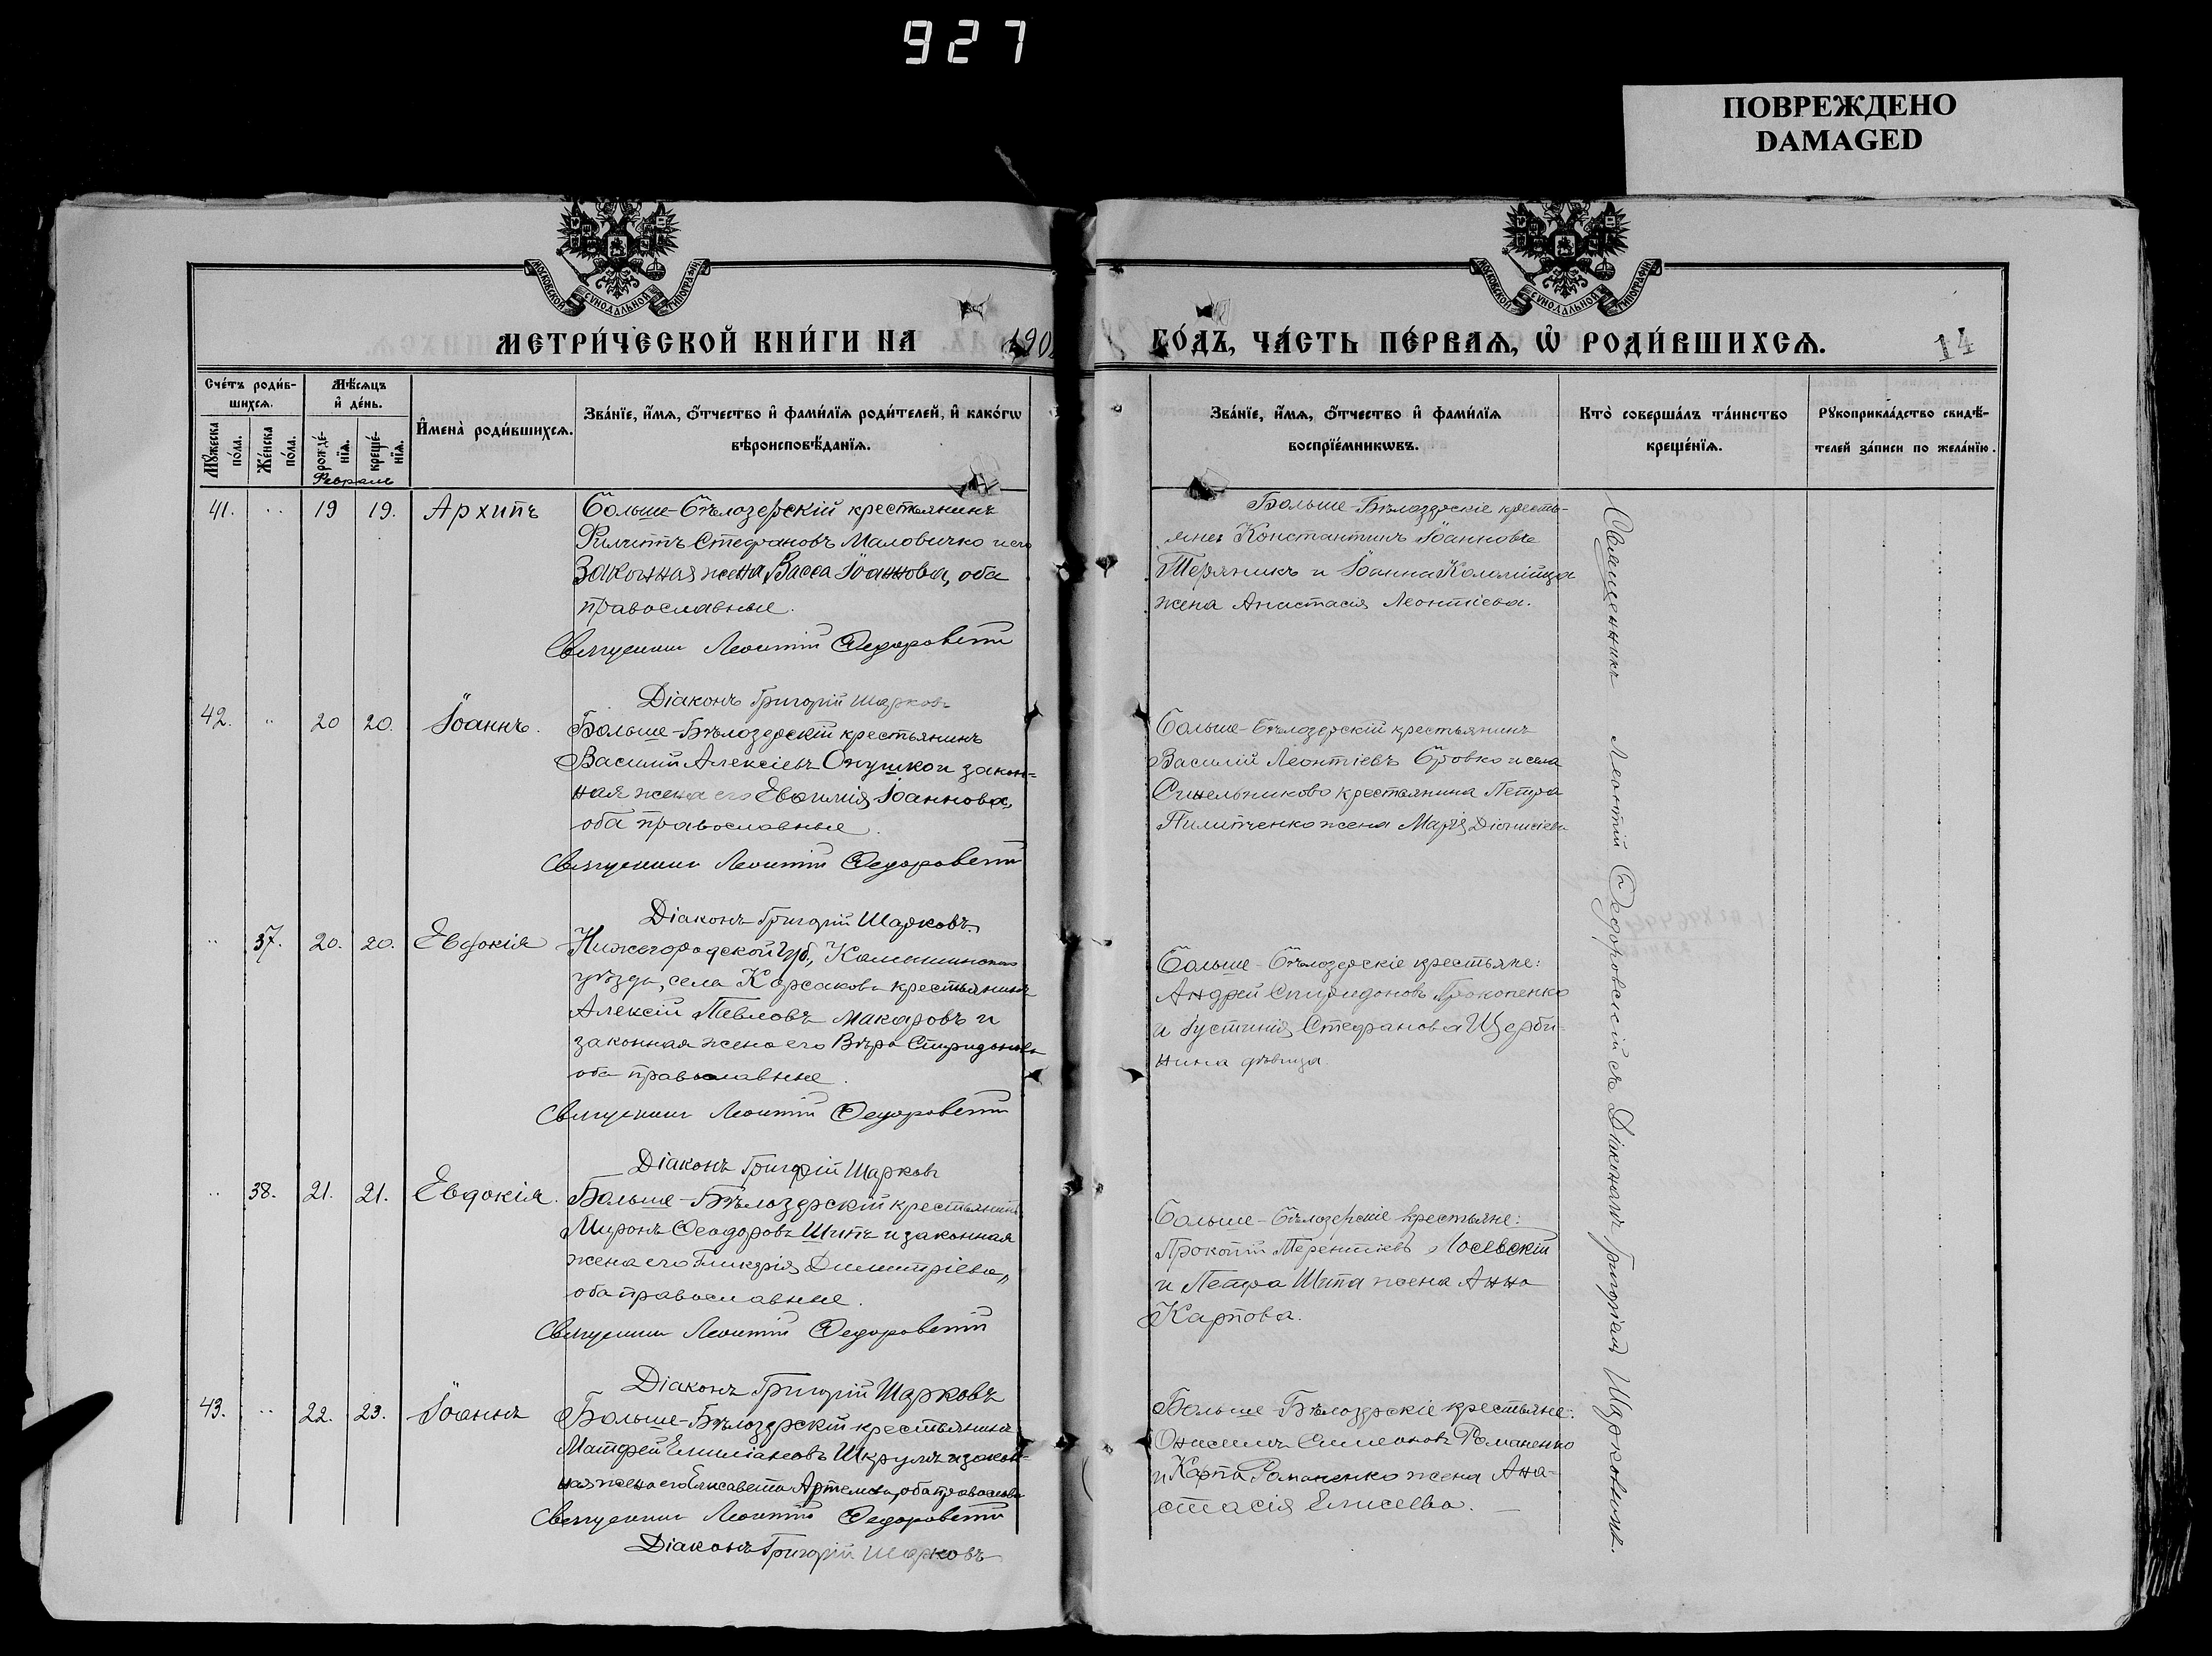 927
ПОВРЕЖДЕНО
DAMAGED
МОСКОВСКОЙ СѴНОДАЛЬНОЙ ТИПОГРАФІИ
МОСКОВСКОЙ СѴНОДАЛЬНОЙ ТИПОГРАФІИ
МЕТРИ́ЧЕСКОЙ КНИ́ГИ НА 190
ГО́ДЪ, ЧА́СТЬ ПЕ́РВАѦ, Ѡ҆ РОДИ́ВШИХСѦ.
14
Сче́тъ роди́в-
шихсѧ.
Мѣ́сѧцъ
и҆ де́нь.
Мꙋ́жеска по́ла.
Же́нска по́ла.
рожде́-
нїѧ.
креще́-
нїѧ.
Февраль
И҆мена̀ роди́вшихсѧ.
Зва́нїе, и҆́мѧ, ѻ҆́тчество и҆ фами́лїѧ роди́телей, и҆ како́гѡ
вѣроисповѣ́данїѧ.
Зва́нїе, и҆́мѧ, ѻ҆́тчество и҆ фами́лїѧ
воспрїе́мникѡвъ.
Кто̀ соверша́лъ та́инство
креще́нїѧ.
Рꙋкоприкла́дство свидѣ́-
телей за́писи по жела́нїю.
41. ,, 19 19. Архипъ
Больше-Бѣлозерскій крестьянинъ
Филиппъ Стефановъ Маловичко и его
законная жена Васса Іоаннова, оба
православные.
Священникъ Леонтій Федоровскій
Діаконъ Григорій Шарковъ
Больше-Бѣлозерскіе кресть-
яне: Константинъ Іоанновъ
Теряникъ и Іоанна Коломійца
жена Анастасія Леонтіева.
42. ,, 20 20. Іоаннъ.
Больше-Бѣлозерскій крестьянинъ
Василій Алексіевъ Онушко и закон-
ная жена его Евѳимія Іоаннова,
оба православные.
Священникъ Леонтій Федоровскій
Діаконъ Григорій Шарковъ.
Больше-Бѣлозерскій крестьянинъ
Василій Леонтіевъ Бровко и села
Синельниково крестьянина Петра
Пилипченко жена Марія Діонисіева
,, 37. 20. 20. Евдокія
Нижегородской губ.,
уѣзда, села Корсакова крестьянинъ
Алексій Павловъ Макаровъ и
законная жена его Вѣра Спиридонова
оба православные.
Священникъ Леонтій Федоровскій
Діаконъ Григорій Шарковъ
Больше-Бѣлозерскіе крестьяне:
Андрей Спиридоновъ Прокопенко
и Іустинія Стефанова Щерби-
нина дѣвица.
,, 38. 21. 21. Евдокія.
Больше-Бѣлозерскій крестьянинъ
Миронъ Ѳеодоровъ Шипъ и законная
жена его Гликерія Димитріева,
оба православные.
Священникъ Леонтій Федоровскій
Діаконъ Григорій Шарковъ
Больше-Бѣлозерскіе крестьяне:
Прокопій Терентіевъ Лосевскій
и Петра Шипа жена Анна
Карпова.
43. ,, 22. 23. Іоаннъ
Больше-Бѣлозерскій крестьянинъ
Матфей Емиліановъ Шкруль и закон-
ная жена его Елисавета Артемова, оба православн
Священникъ Леонтій Федоровскій
Діаконъ Григорій Шарковъ
Больше-Бѣлозерскіе крестьяне:
Онисимъ Симеоновъ Романенко
и Карпа Романенко жена Ана-
стасія Елисеева.
Священникъ Леонтій Федоровскій съ Діакономъ Григоріемъ Шарковымъ.